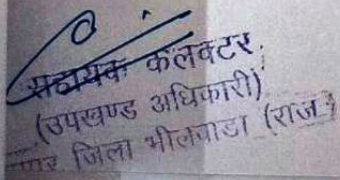 सहायक कलक्टर
(उपखण्ड अधिकारी)
जिला भीलवाडा (राज